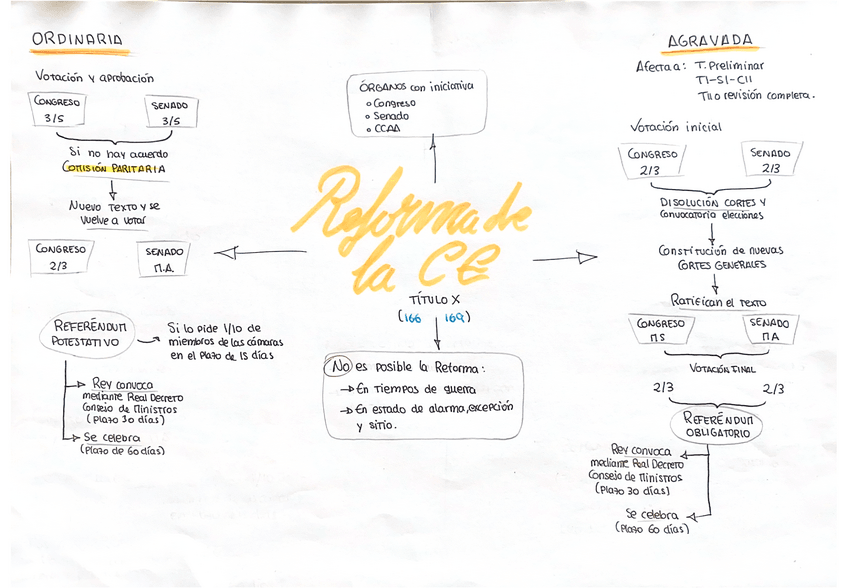 ORDINARIA
Votación y aprobación
CONGRESO
3/5
SENADO
3/5
Si no hay acuerdo
COMISIÓN PARITARIA
NUEVO TEXTO y se
vuelve a votar
CONGRESO
2/3
SENADO
M.A.
REFERÉNDUM
POTESTATIVO
Si lo pide 1/10 de
miembros de las cámaras
en el plazo de 15 días
Rey convoca
mediante Real Decreto
Consejo de Ministros
(Plazo 30 días)
Se celebra
(Plazo de 60 días)
ÓRGANOS con iniciativa
Congreso
Senado
CCAA
Reforma de
la CE
TÍTULO X
(166 169)
No es posible la Reforma:
En tiempos de guerra
En estado de alarma, excepción
y sitio.
AGRAVADA
Afecta a: T. Preliminar
TI-S1-CII
TII o revisión completa.
Votación inicial
CONGRESO
2/3
SENADO
2/3
DISOLUCIÓN CORTES y
Convocatoria elecciones
Constitución de nuevas
CORTES GENERALES
Ratifican el TEXTO
CONGRESO
MS
SENADO
MA
VOTACIÓN FINAL
2/3 2/3
REFERÉNDUM
OBLIGATORIO
Rey convoca
mediante Real Decreto
Consejo de Ministros
(Plazo 30 días)
Se celebra
(Plazo 60 días)